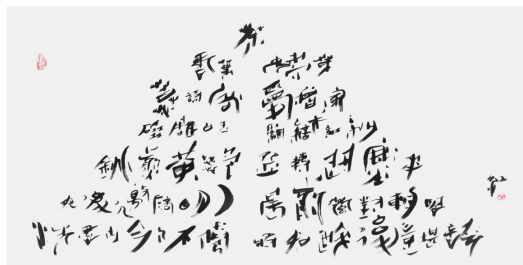 茶
香葉 嫩芽
慕詩客 愛僧家
碾雕白玉 羅織紅紗
銚煎黃蕊色 碗轉麴塵花
夜後邀陪明月 晨前對朝霞
洗盡古今人不倦 將知醉後豈堪誇